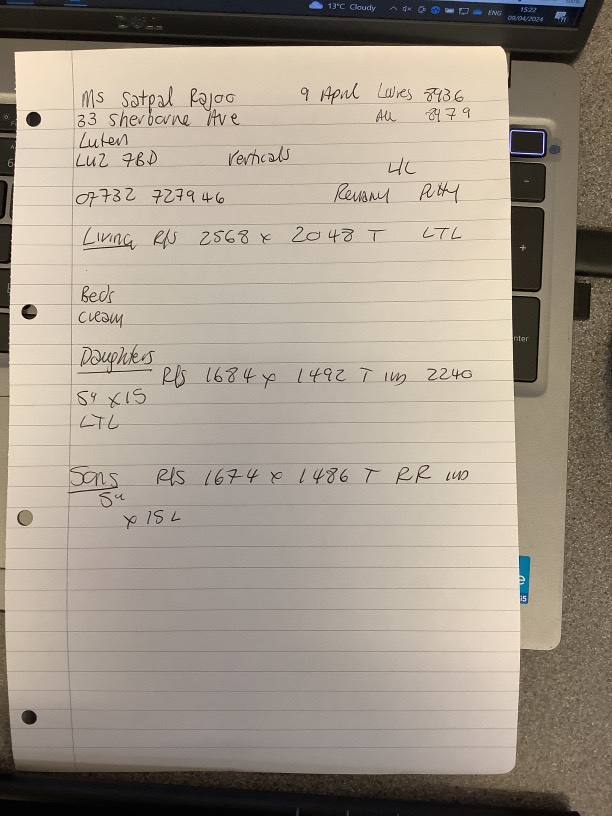 13°C Cloudy ENG 15:22
09/04/2024
DELL
Ms Satpal Rajoo 9 April Louvres 8936
33 Sherborne Ave All 8979
Luton
LU2 7BD Verticals
L/C
07732 727946 Putty
Living R/S 2568 x 2048 T LTL
Beds
Cream
Daughters
R/S 1684 x 1492 T 2240
5" x 15
LTL
Sons R/S 1674 x 1486 T RR
5"
x 15 L